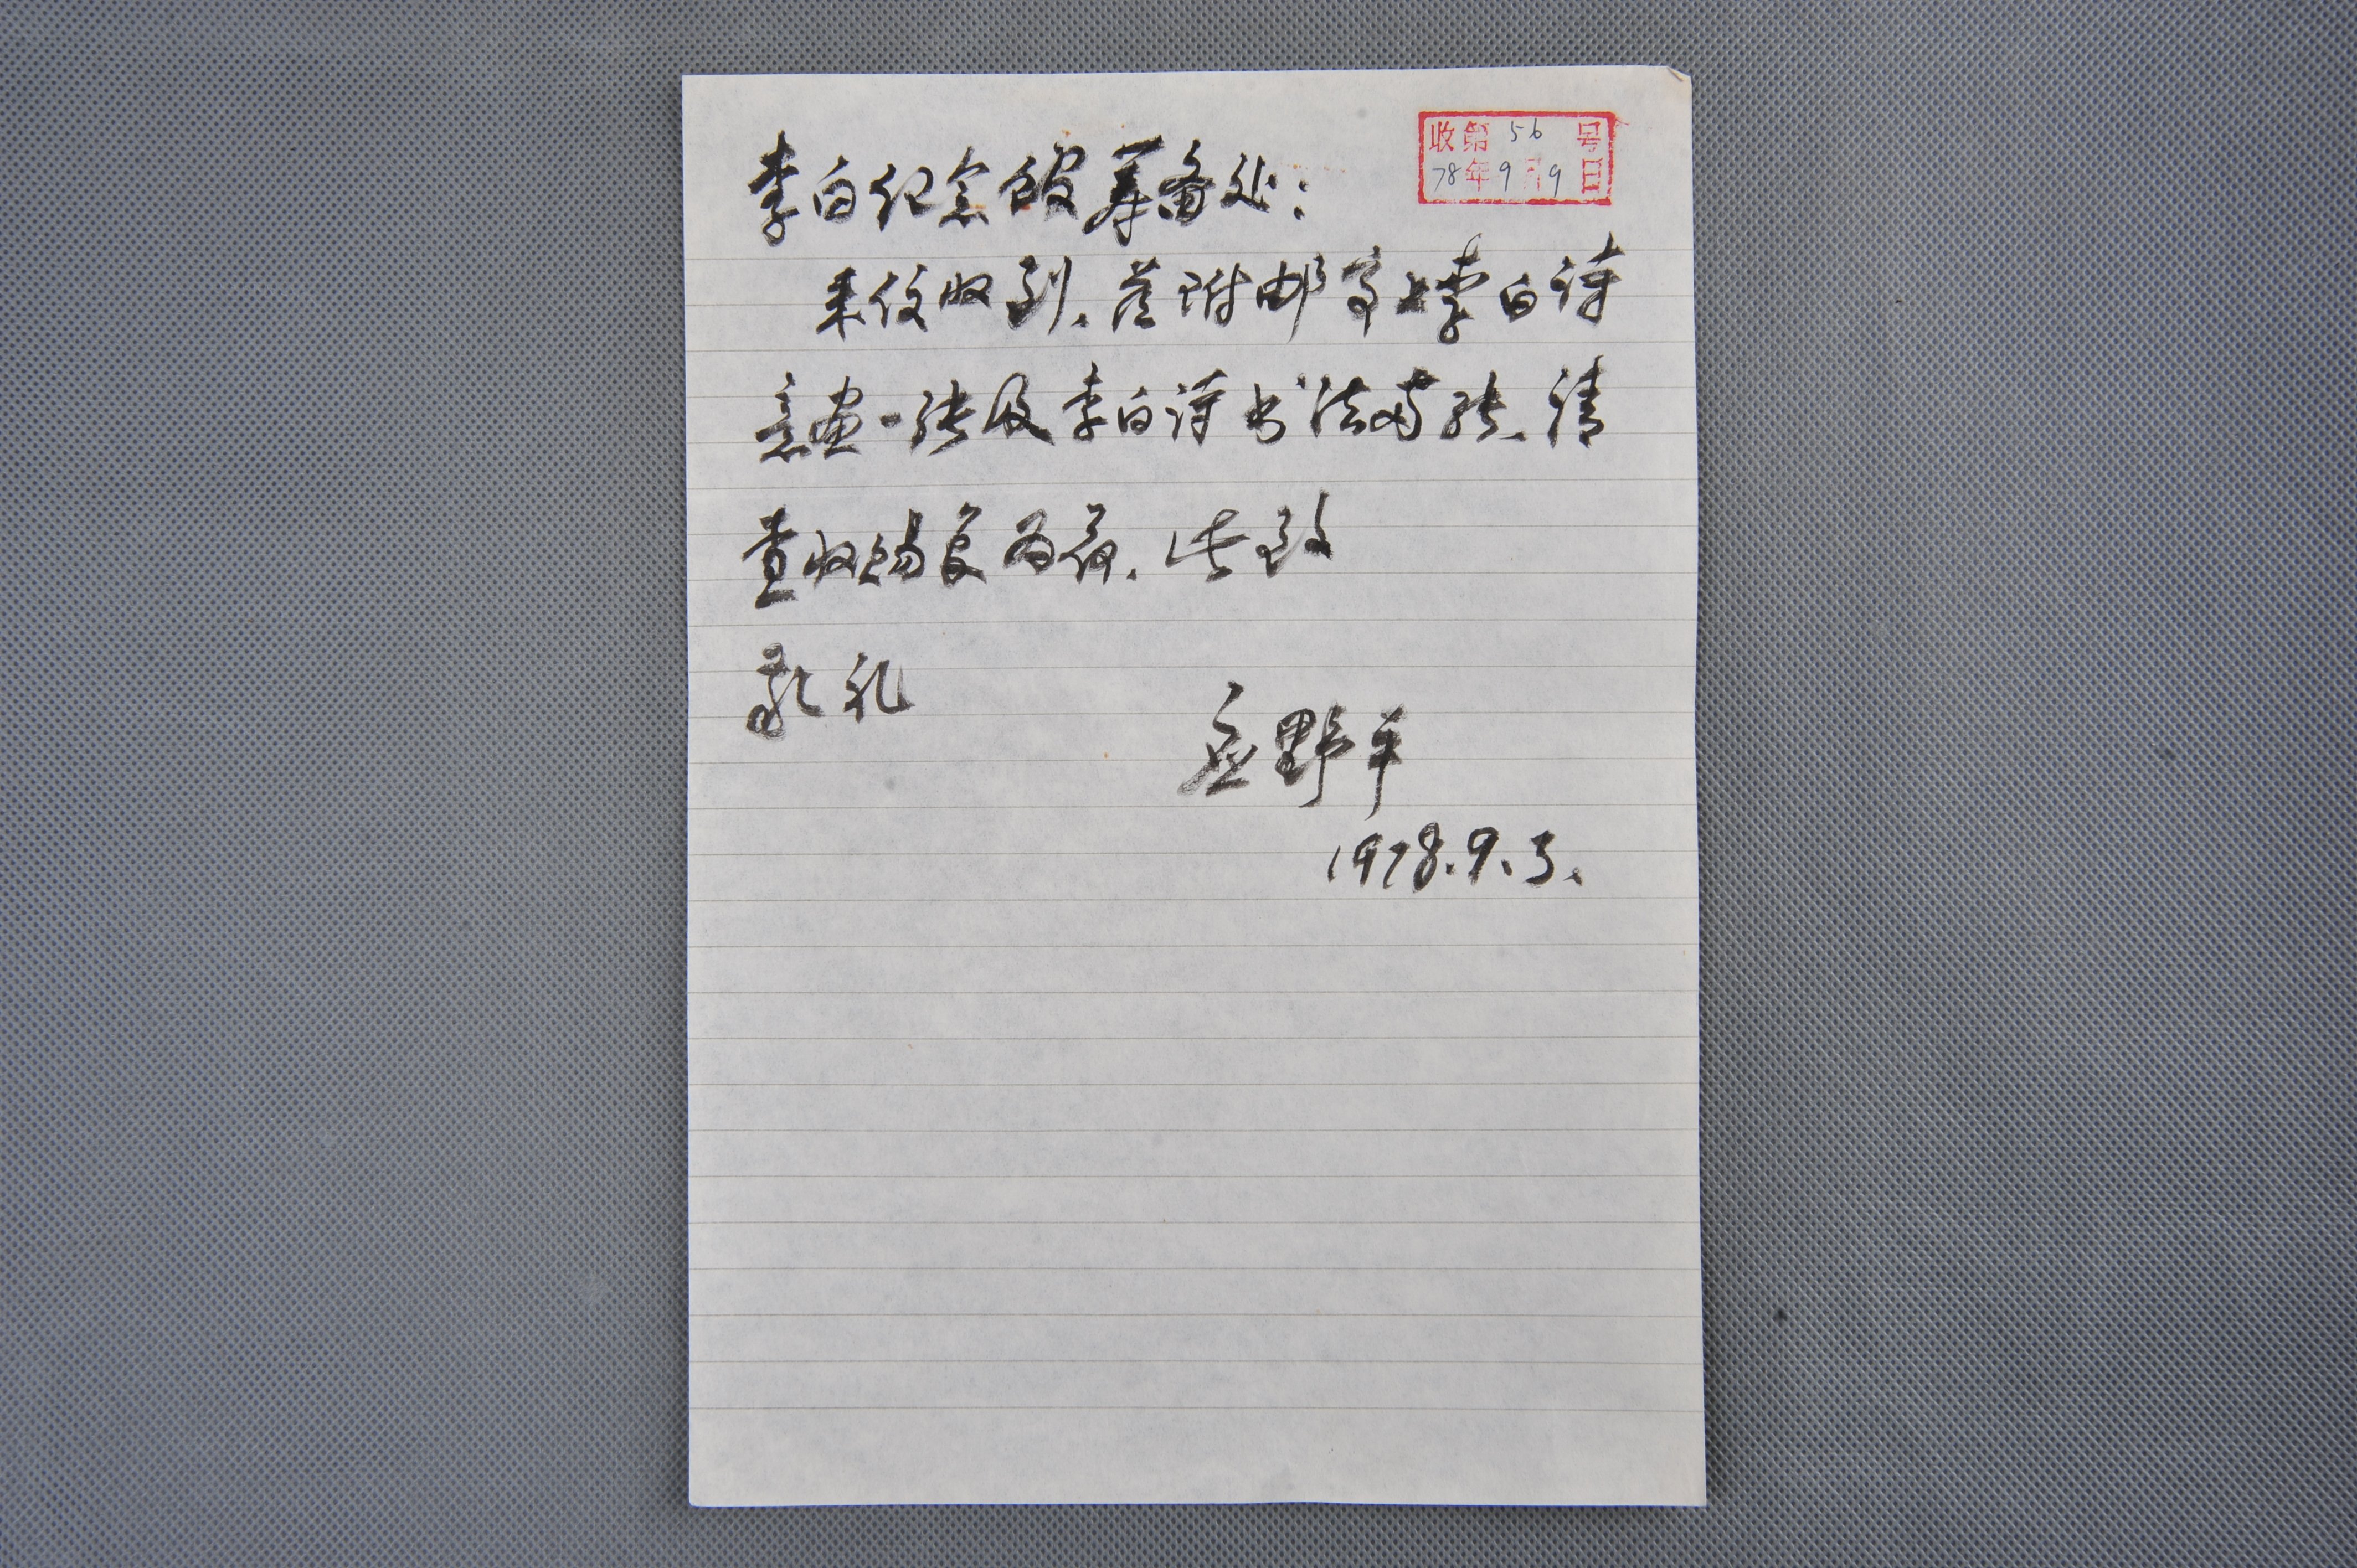 收第 56 号
78年9月9日
李白纪念馆筹备处：
来信收到、兹附邮寄上李白诗
意画一张及李白诗书法两张、请
查收赐复为荷．此致
敬礼
应野平
1978.9.3、